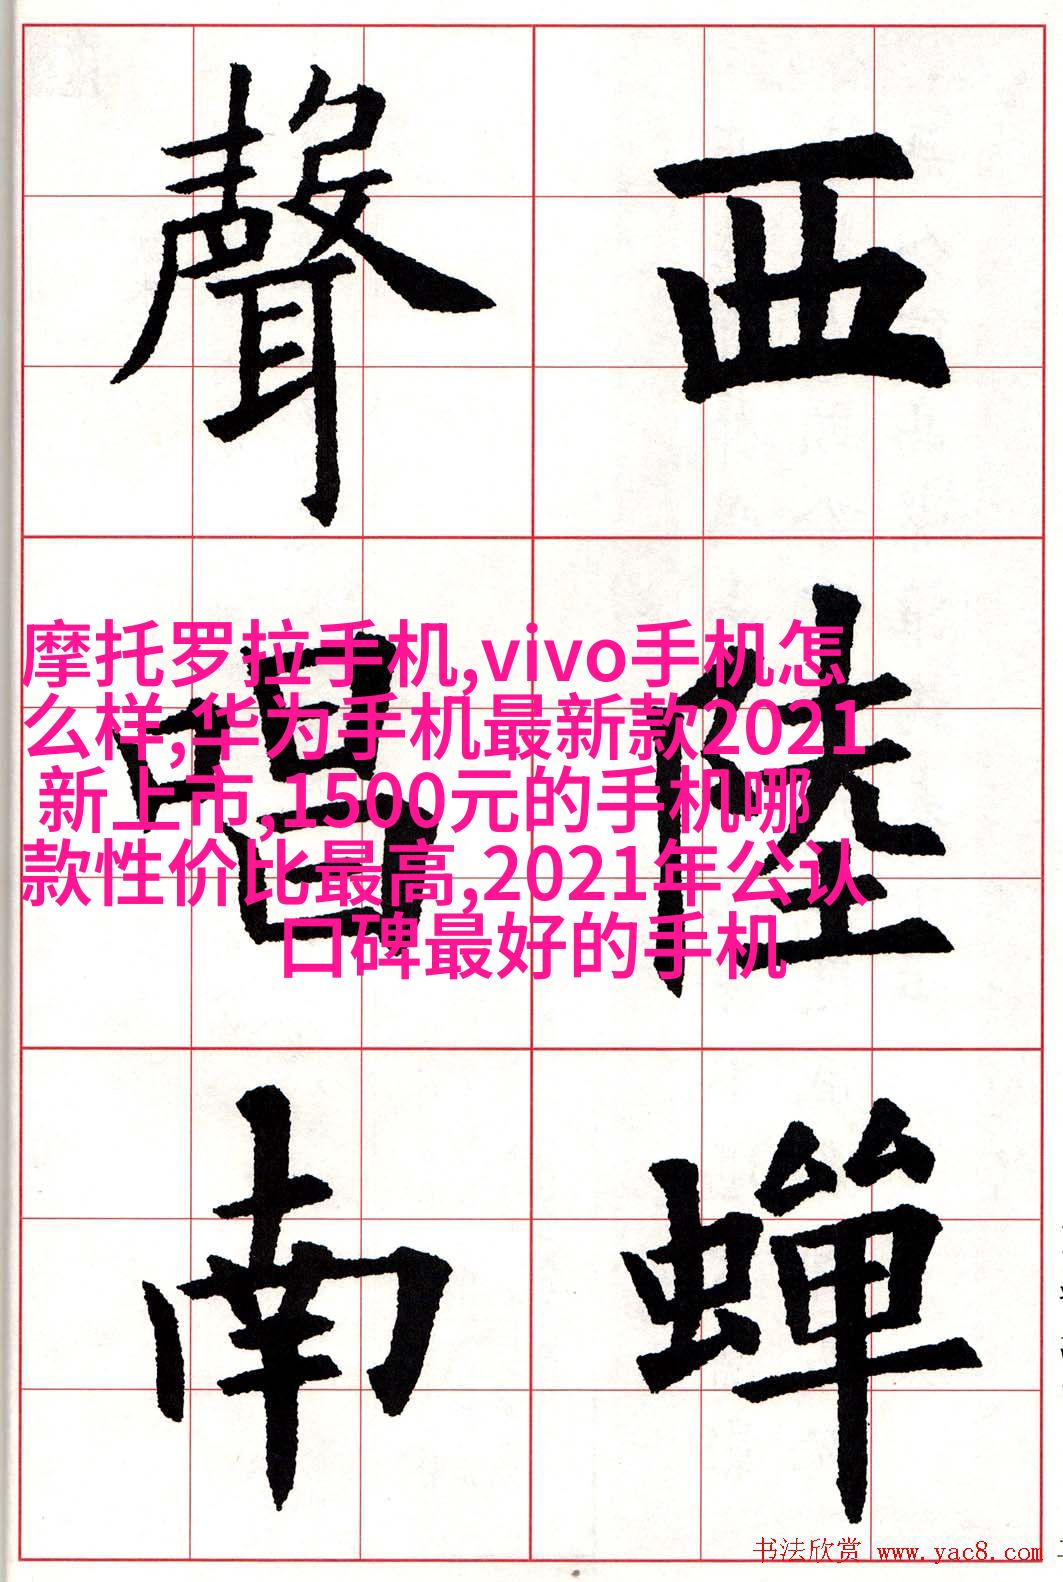 西陸蟬
聲唱南
摩托罗拉手机,vivo手机怎
么样,华为手机最新款2021
新上市,1500元的手机哪
款性价比最高,2021年公认
口碑最好的手机
书法欣赏 www.yac8.com